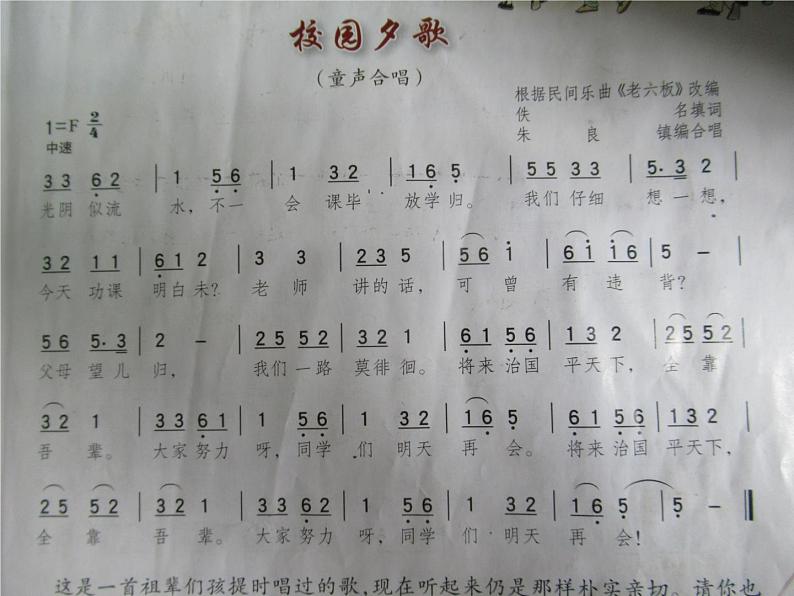 校园夕歌
(童声合唱)
根据民间乐曲《老六板》改编
1=F 2/4
佚 名填词
中速
朱 良 镇编合唱
3 3 6 2 | 1 5 6 | 1 3 2 | 1 6 5 | 5 5 5 5 | 5. 3 2 |
光阴 似流 水, 不一 会 课毕 放学 归。 我们 仔细 想 一 想,
3 2 1 1 | 6 1 2 | 3 3 | 2 3 5 | 5 6 1 | 6 1 1 6 | 5 – |
今天 功课 明白 未? 老 师 讲的 话, 可 曾 有 违 背?
5 6 5. 3 | 2 – | 2 5 5 2 | 5 5 2 | 6 1 5 6 | 1 3 2 | 2 5 5 2 |
父母 望 儿 归, 我们 一路 莫徘 徊。 将来 治国 平天 下, 全 靠
3 2 1 | 3 3 6 1 | 1 5 6 | 1 3 2 | 1 6 5 | 6 1 5 6 | 1 3 2 |
吾 辈。 大家 努力 呀, 同学 们 明天 再 会。 将来 治国 平天 下,
2 5 5 2 | 3 2 1 | 3 3 6 1 | 1 5 6 | 1 3 2 | 1 6 5 | 5 – ‖
全 靠 吾 辈。 大家 努力 呀, 同学 们 明天 再 会!
这是一首祖辈们孩提时唱过的歌,现在听起来仍是那样朴实亲切。请你也